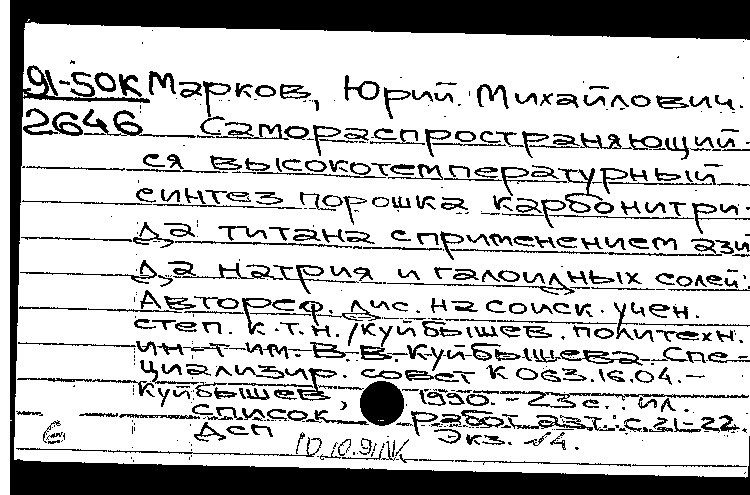 91-50К Марков, Юрий Михайлович.
2646 Самораспространяющий-
ся высокотемпературный
синтез порошка карбонитри-
да титана с применением ази-
да натрия и галоидных солей:
Автореф. дис. на соиск. учен.
степ. к.т.н. / Куйбышев. политехн.
ин-т им. В.В. Куйбышева. Спе-
циализир. совет К 063.16.04.-
Куйбышев, 1990. - 23 с.: ил.
список работ авт.: с 21-22.
Дсп Экз. №4.
6 10.10.91